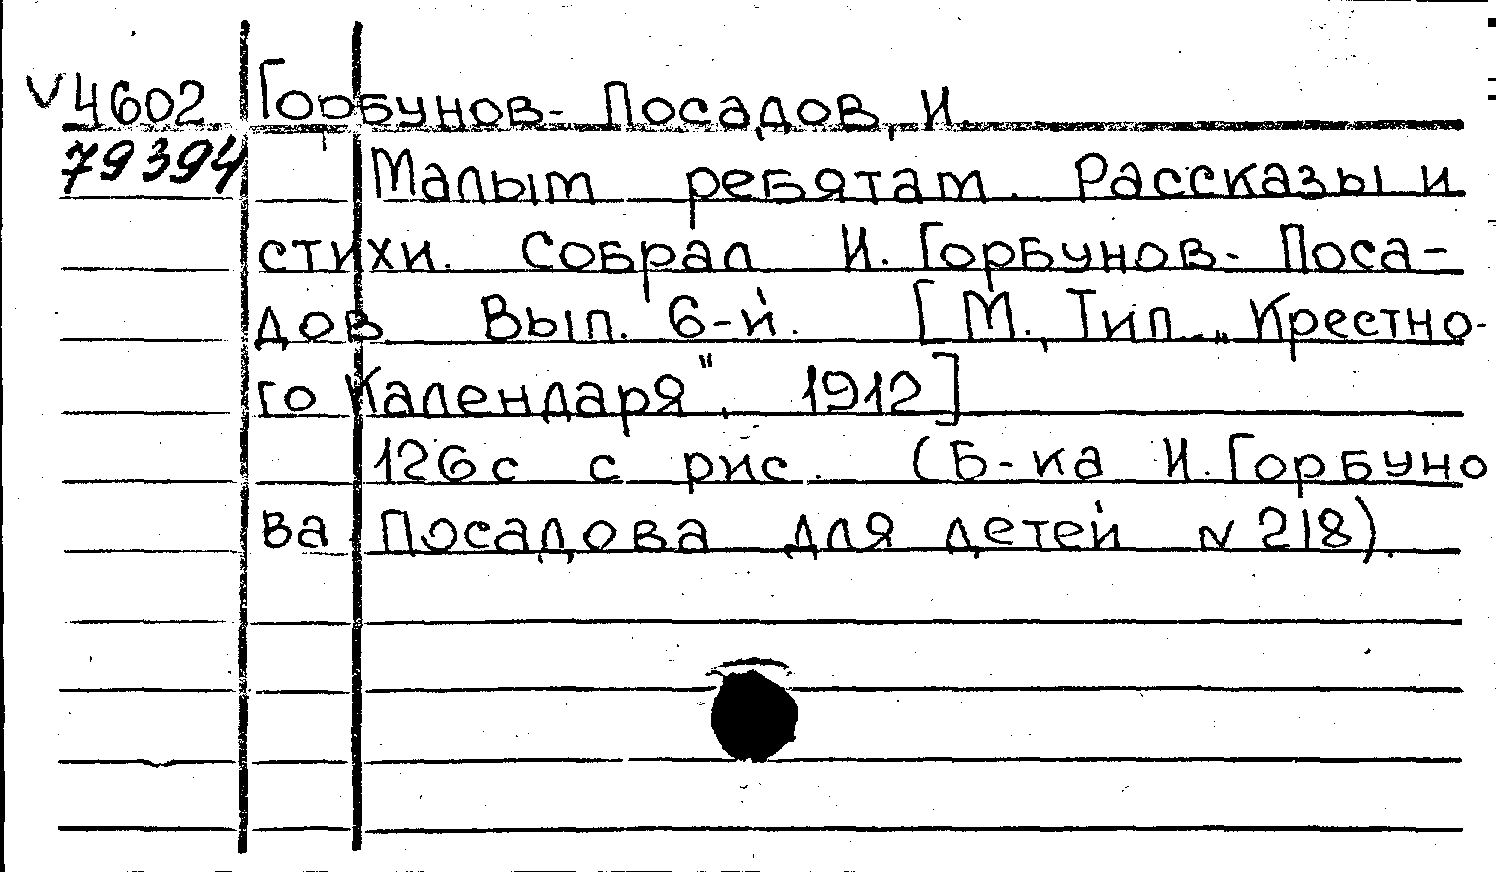 V4602 Горбунов-Посадов, И.
79394 Малым ребятам. Рассказы и
стихи. Собрал И. Горбунов-Поса-
дов. Вып. 6-й. [М., Тип. „Крестно-
го Календаря", 1912]
126с с рис. (Б-ка И. Горбуно
ва Посадова для детей N 218).